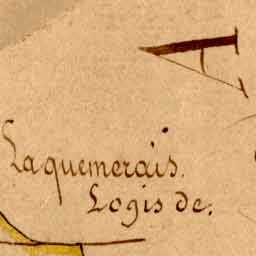 A
Laquemerais.
Logis de.